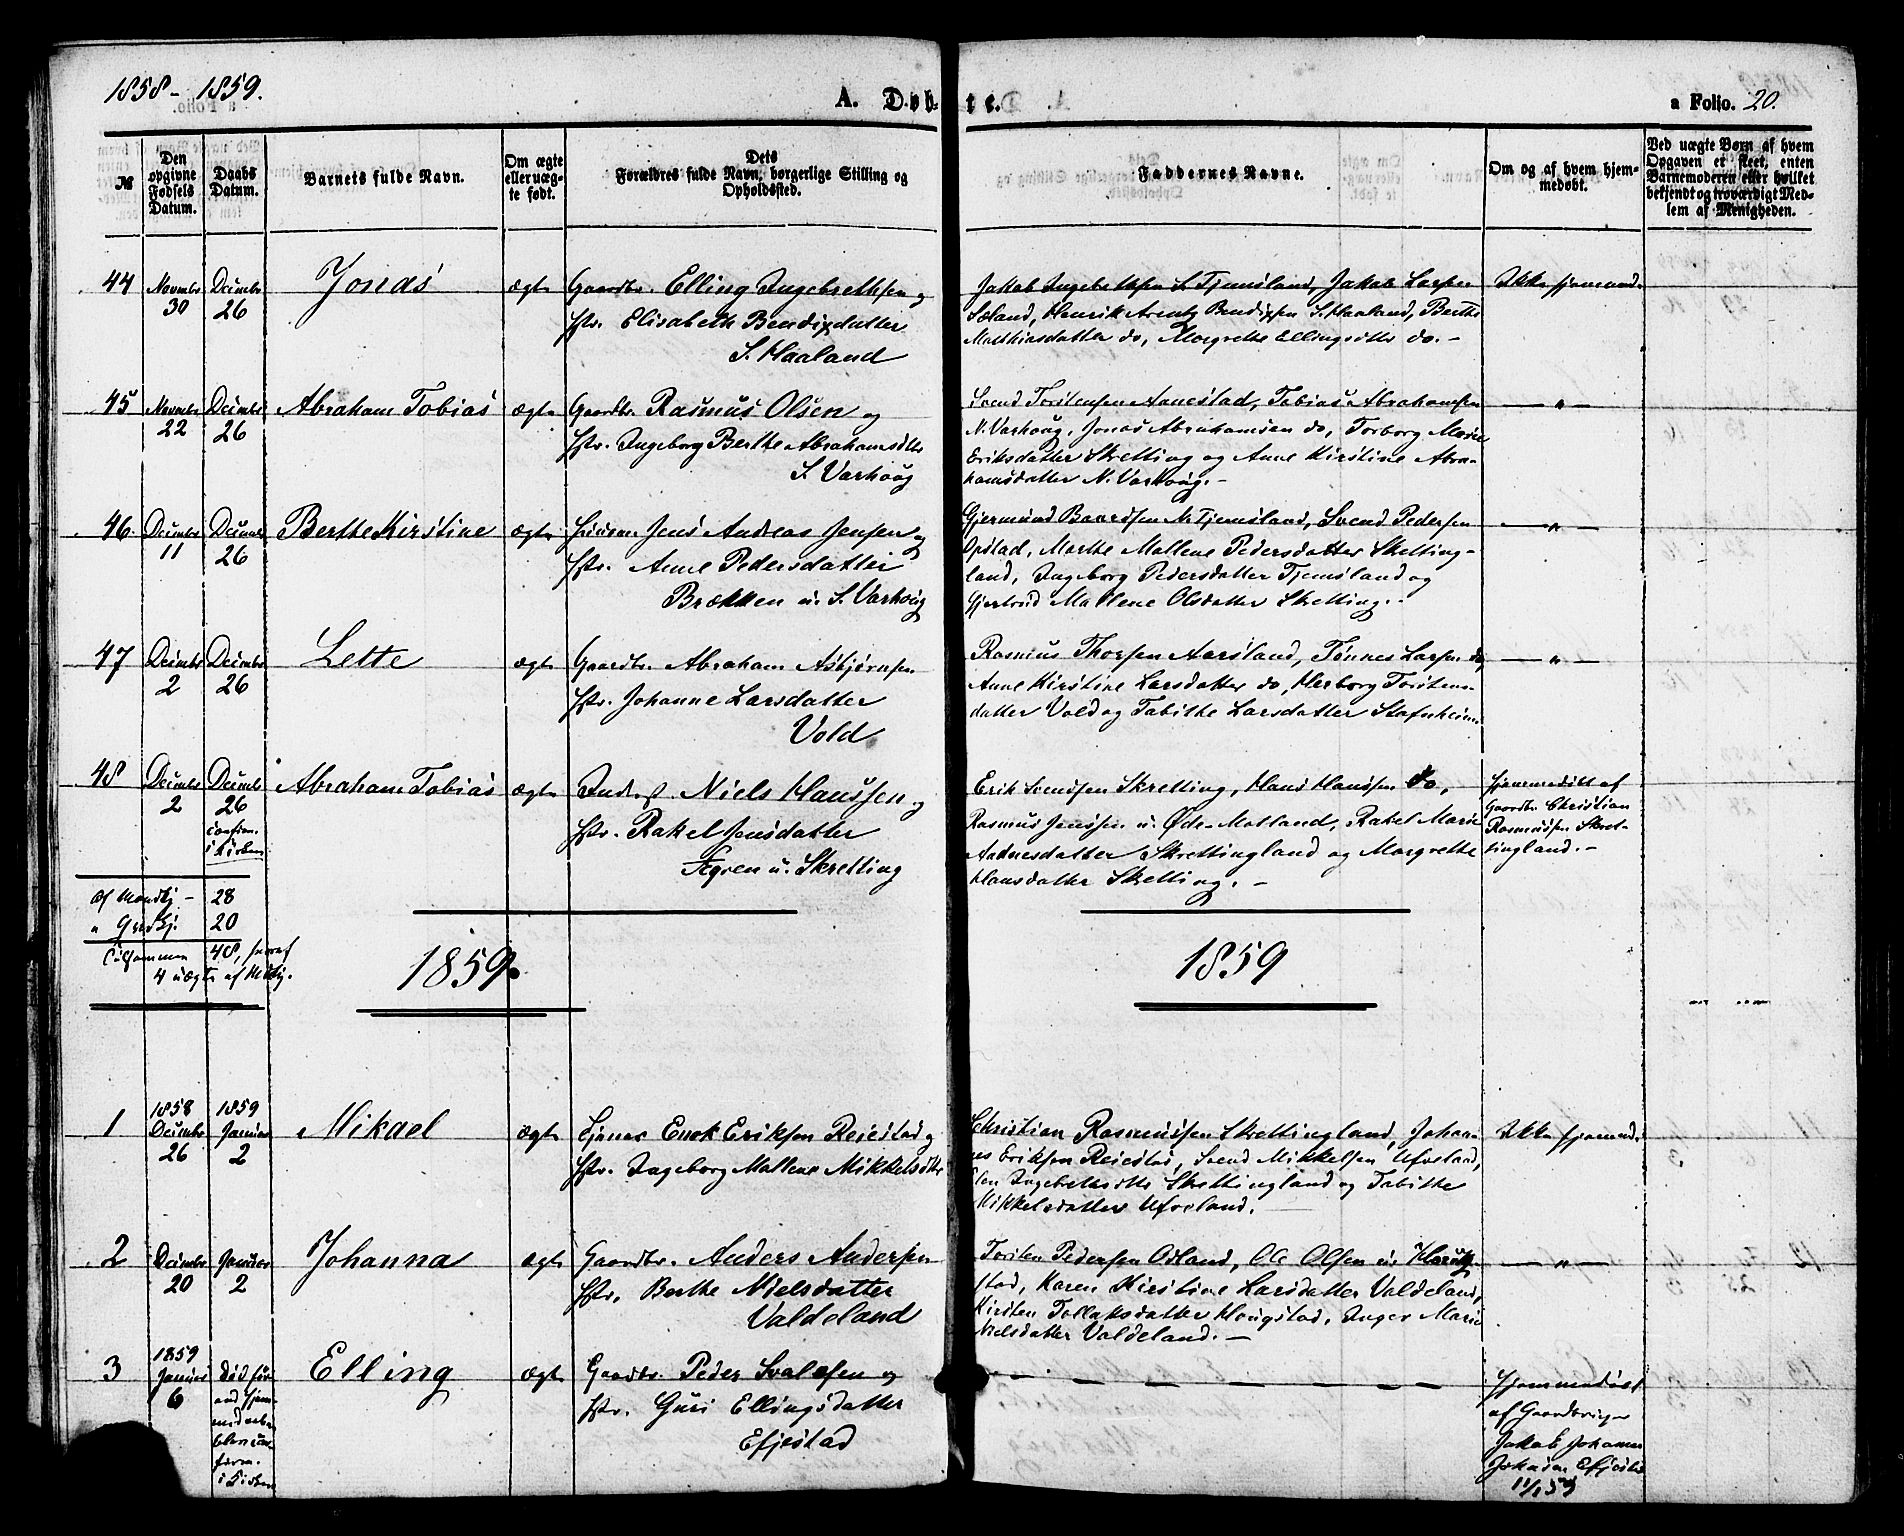 1858-1859.
A. Døb-
te.
a Folio. 20.
№
Den opgivne Fødsels Datum.
Daabs Datum.
Barnets fulde Navn.
Om ægte eller uæg-te født.
Dets
Forældres fulde Navn, borgerlige Stilling og
Opholdssted.
Faddernes Navne.
Om og af hvem hjem-
medøbt.
Ved uægte Børn af hvem
Opgaven er skeet, enten
Barnemoderen eller hvilket
bekjendt og troværdigt Med-
lem af Menigheden.
44 Novembr 30 Decembr 26 Jonas ægte
Gaardbr. Elling Ingebrethsen og
Hstr. Elisabeth Bendixdatter
S. Haaland
Jakob Ingebrethsen S. Tjemsland, Jakob Larsen
Søland, Henrik Arentz Bendixsen S. Haaland, Berthe
Matthiasdatter do, Margrethe Ellingsdttr do. -
Ikke hjemmed.
45 Novembr 22 Decembr 26 Abraham Tobias ægte
Gaardbr. Rasmus Olsen og
Hstr. Ingeborg Berthe Abrahamsdttr
S. Varhoug
Svend Torstensen Aanestad, Tobias Abrahamsen
N. Varhoug, Jonas Abrahamsen do, Torborg Marie
Eriksdatter Skretting og Anne Kirstine Abra-
hamsdatter N. Varhoug. -
— " —
46. Decembr 11 Decembr 26 Berthe Kirstine ægte
Jens Andreas Jensen og
Hstr. Anne Pedersdatter
Brækken u. S. Varhoug
Gjermund Baardsen N. Tjemsland, Svend Pedersen
Opstad, Marthe Mallene Pedersdatter Skretting-
land, Ingeborg Pedersdatter Tjemsland og
Gjertrud Mallene Olsdatter Skretting. -
— " —
47 Decembr 2 Decembr 26 Lette ægte
Gaardbr. Abraham Asbjørnsen
Hstr. Johanne Larsdatter
Vold
Rasmus Thorsen Aarsland, Tønnes Larsen do,
Anne Kirstine Larsdatter do, Herborg Torstens-
datter Vold og Tabithe Larsdatter Stofnheim
— " —
48 Decembr 2 Decembr 26 confirm. i Kirken Abraham Tobias ægte
Inderst Niels Hanssen og
Hstr. Rakel Jensdatter
Ægren u. Skretting
Erik Svendsen Skretting, Hans Hanssen do,
Rasmus Jenssen u. Øde-Motland, Rakel Marie
Aadnesdatter Skrettingland og Margrethe
Hansdatter Skretting. -
Hjemmedøbt af
Gaardbr. Christian
Rasmussen Skret-
tingland. -
28
20
Tilsammen 48, hvoraf
4 uægte
1859.
1859
1 1858 Decembr 26 1859 Januar 2 Mikael ægte
Enok Eriksen Reiestad og
Hstr. Ingeborg Mallene Mikkelsdttr
Christian Rasmussen Skrettingland, Johan-
nes Eriksen Reiestad, Svend Mikkelsen Ufveland,
Elen Ingebrethsdttr Skrettingland og Tabithe
Mikkelsdatter Ufveland.
Ikke hjemmed.
2 Decembr 20 Januar 2 Johanna ægte
Gaardbr. Anders Andersen
Hstr. Berthe Nielsdatter
Valdeland
Torsten Pedersen Odland, Ole Olsen u. Houg-
stad, Karen Kirstine Larsdatter Valdeland,
Kirsten Tollaksdatter Hougstad, Inger Marie
Nielsdatter Valdeland. -
— " —
3 1859 Januar 6 Død før end Hjem- i Kirken Elling ægte
Gaardbr. Peder Svalesen og
Hstr. Guri Ellingsdatter
Efjestad
Hjemmedøbt
af Gaardbruger
Jakob Johannes
Johnsen Efjestad
11/1 59